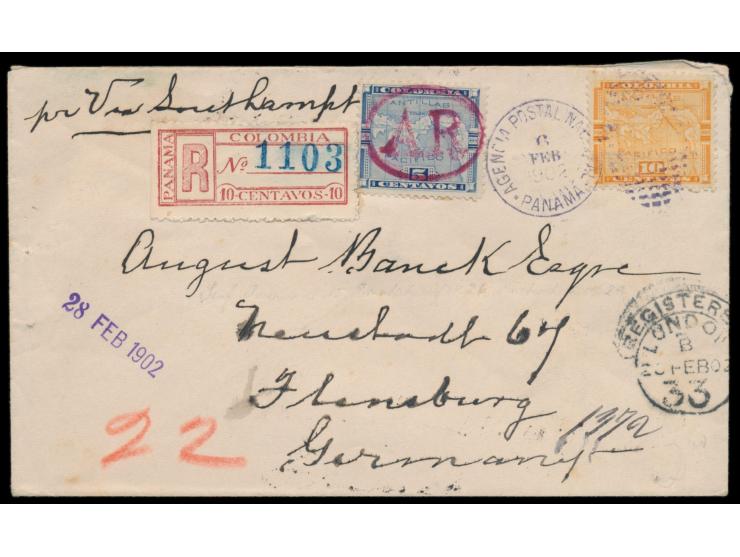 pr Via Southampt
PANAMA
COLOMBIA
R
No 1103
10-CENTAVOS-10
COLOMBIA
ANTILLAS
AR
PACIFICO
5
CENTAVOS
AGENCIA POSTAL
6
FEB
1902
PANAMA
COLOMBIA
PACIFICO
10
August Banck Esqre
Neustadt 64
Flensburg
Germany
28 FEB 1902
REGISTERE
LONDON
B
FEB 02
33
22
1372